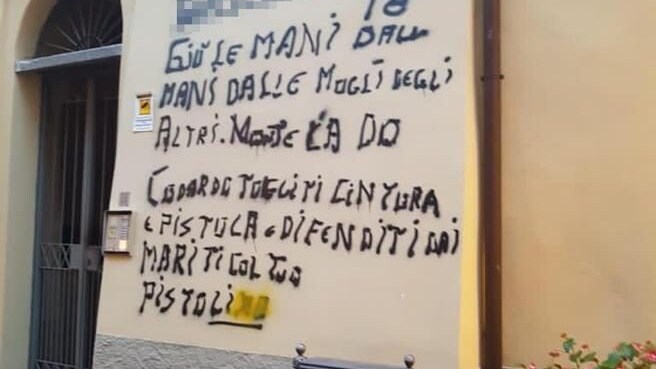 GIÙ LE MANI DALL
MANI DALLE MOGLI DEGLI
ALTRI. MONTE CA DO
CODARDO TOGLITI CINTURA
E PISTOLA E DIFENDITI DAI
MARITI COL TUO
PISTOLI